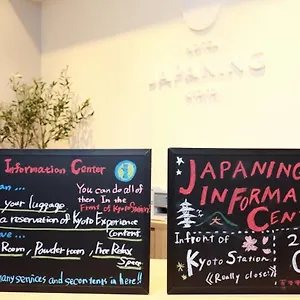 HOTEL
JAPANING
Information Center
an ...
your luggage
a reservation of Kyoto Experience
Content
Room, Powder room, Free Relax
Space
many services and so contents in here!!
You can do all of
them In the
Front of Kyoto Station!
JAPANING
INFORMA
CEN
In front of
Kyoto Station
《Really close!》
2